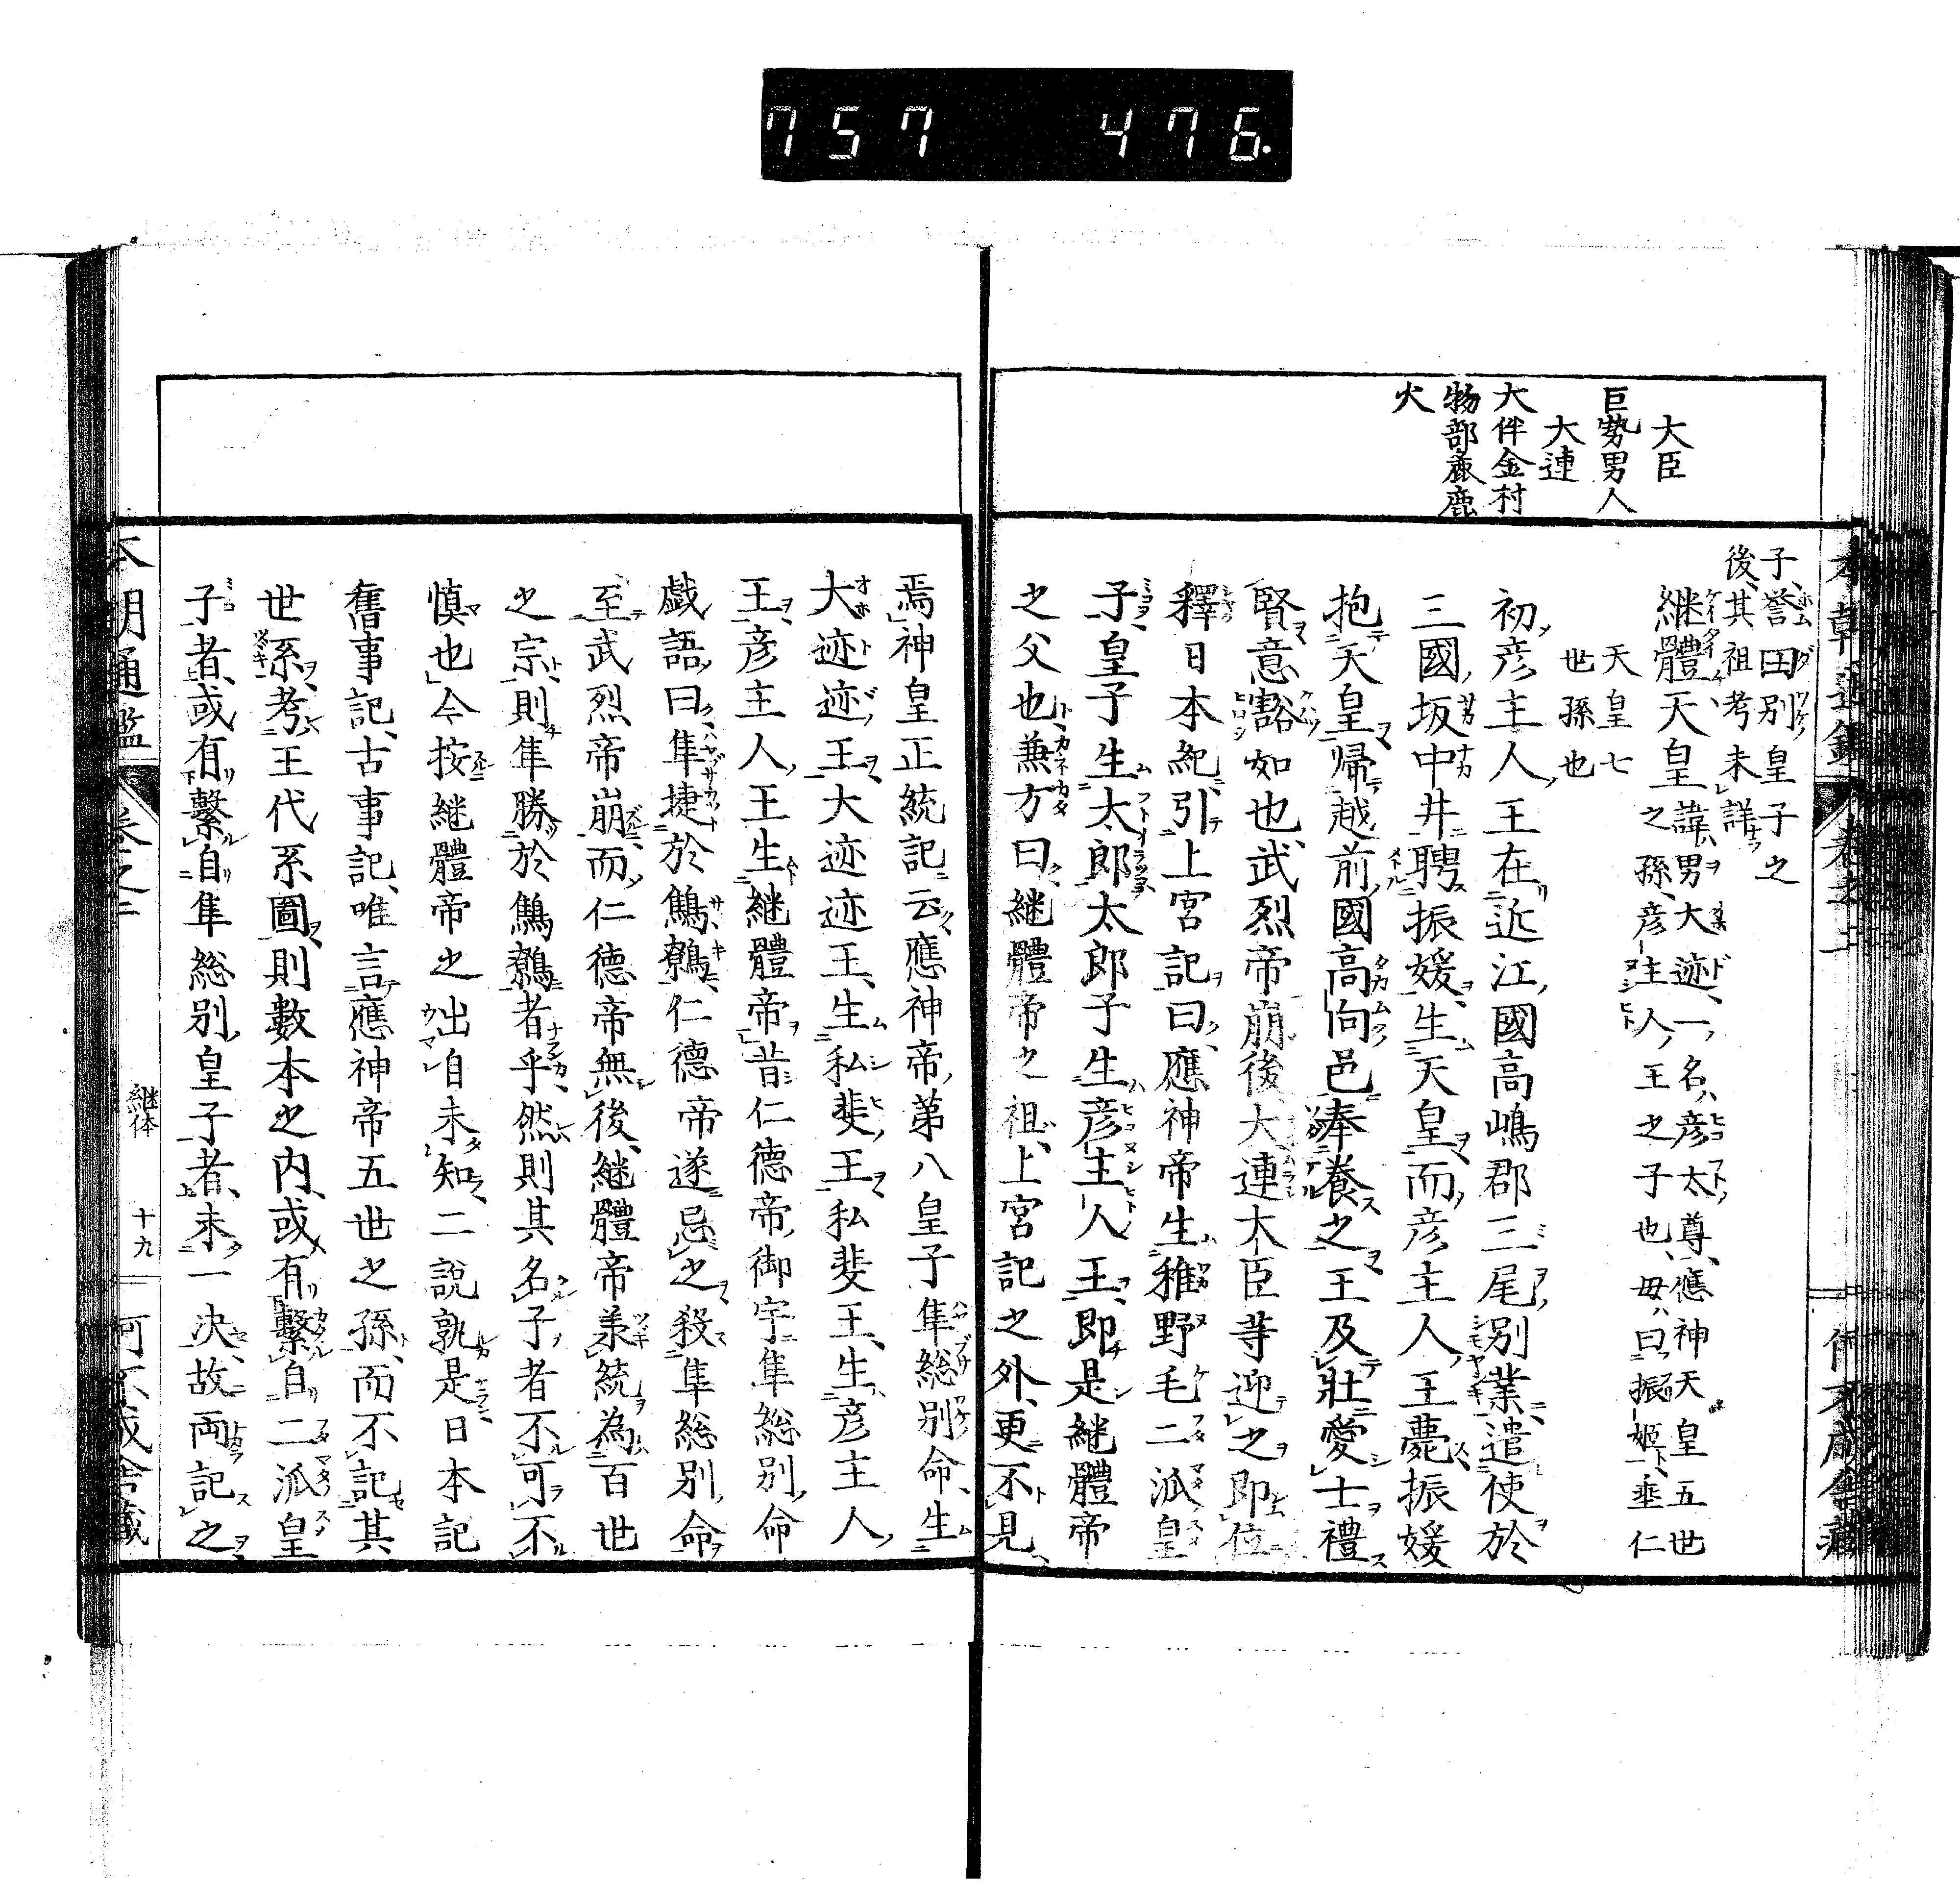 757 476.
大臣
巨勢男人
大連
大伴金村
物部麁鹿
火
子誉田別皇子之
後其祖考未詳
継體天皇諱男大迹一名彦太尊應神天皇五世
之孫彦主人王之子也母曰振姬垂仁
天皇七
世孫也
初彦主人王在近江國高嶋郡三尾別業遣使於
三國坂中井聘振媛生天皇而彦主人王薨振媛
抱天皇帰越前國高向邑奉養之王及壯愛士禮
賢意豁如也武烈帝崩後大連大臣等迎之即位
釋日本紀引上宮記曰應神帝生稚野毛二派皇
子皇子生太郎子太郎子生彦主人王即是継體帝
之父也兼方曰継體帝之祖上宮記之外更不見
焉神皇正統記云應神帝第八皇子隼総別命生
大迹迹王大迹迹王生私斐王私斐王生彦主人
王彦主人王生継體帝昔仁德帝御宇隼総別命
戯語曰隼捷於鷦鷯仁德帝遂忌之殺隼総別命
至武烈帝崩而仁德帝無後継體帝羕統為百世
之宗則隼勝於鷦鷯者乎然則其名子者不可不
慎也今按継體帝之出自未知二說孰是日本記
舊事記古事記唯言應神帝五世之孫而不記其
世系考王代系圖則數本之内或有繫自二派皇
子者或有繫自隼総別皇子者未一决故両記之
本朝通鑑 卷之二 継体 十九